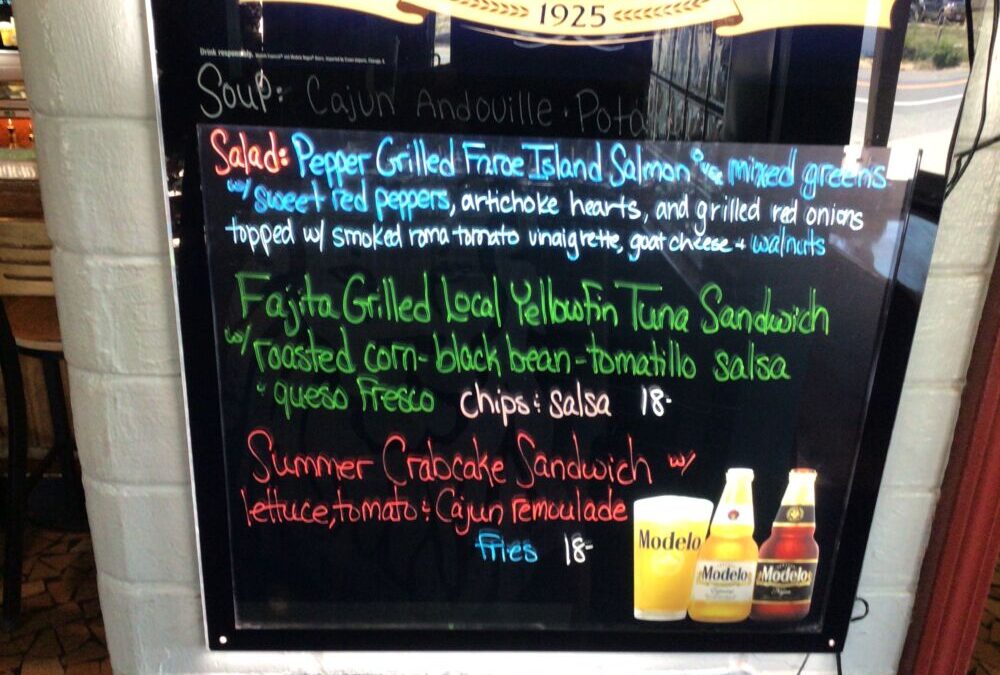 1925
Drink responsibly.
Soup: Cajun Andouille + Pota
Salad: Pepper Grilled Faroe Island Salmon mixed greens
w/ sweet red peppers, artichoke hearts, and grilled red onions
topped w/ smoked roma tomato vinaigrette, goat cheese + walnuts
Fajita Grilled Local Yellowfin Tuna Sandwich
w/ roasted corn-black bean-tomatillo salsa
+ queso fresco chips & salsa 18-
Summer Crabcake Sandwich w/
lettuce, tomato & Cajun remoulade
fries 18-
Modelo
Modelo
Modelo